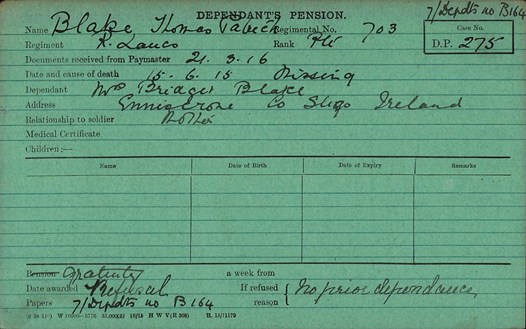 7/Depdts no B164
DEPENDANT'S PENSION.
Name Blake, Thomas Patrick Regimental No. 703
Case No.
D.P. 275
Regiment R. Lancs Rank Pte
Documents received from Paymaster 21.3.16
Date and cause of death 15.6.15 Missing
Dependant Mrs Bridget Blake
Address Enniscrone Co Sligo Ireland
Relationship to soldier Mother
Medical Certificate
Children:—
Name Date of Birth Date of Expiry Remarks
Pension Gratuity a week from
Date awarded Refusal If refused reason { No prior dependance
Papers 7/Depdts no B164
H W V(R 308)